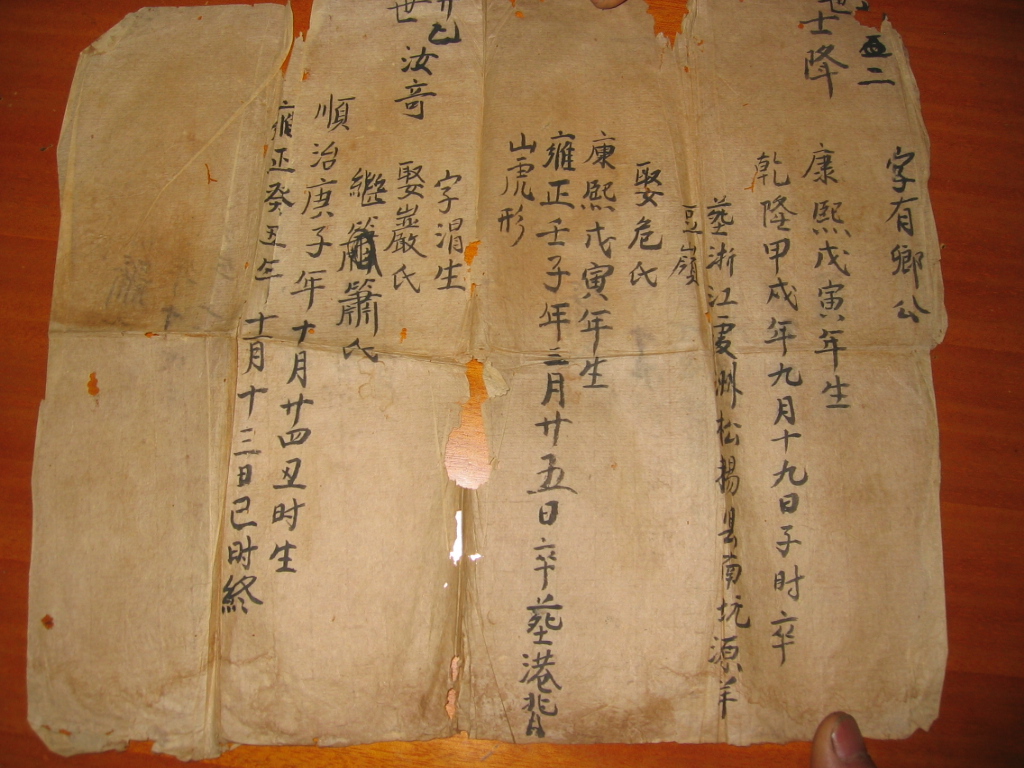 五二
世士降
字有鄉公
康熙戊寅年生
乾隆甲戍年九月十九日子时卒
塟浙江䖏州松揚县南坑源羊
豆嶺
娶危氏
康熙戊寅年生
雍正壬子年三月廿五日卒塟港背
山虎形
世
汝奇
字渭生
娶嚴氏
繼簫氏
順治庚子年十月廿四丑时生
雍正癸丑年十一月十三日巳时終